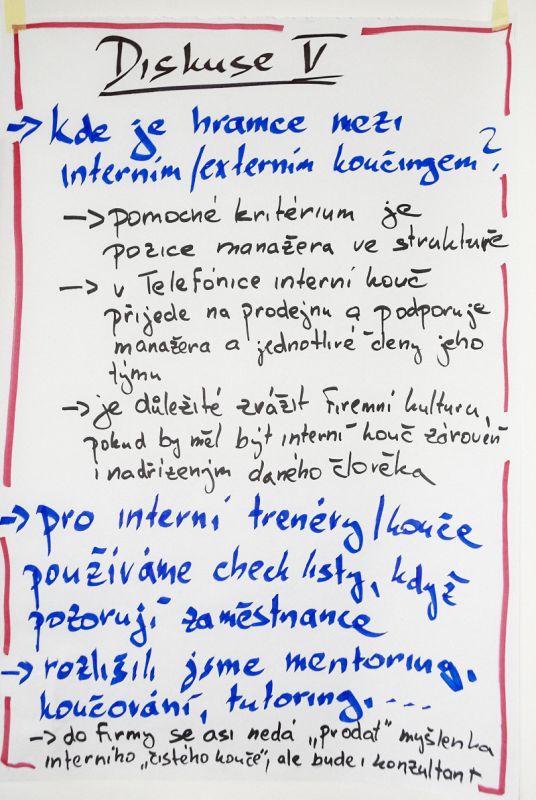 Diskuse V
→ kde je hranice mezi
interním/externím koučingem?
→ pomocné kritérium je
pozice manažera ve struktuře
→ v Telefónice interní kouč
přijede na prodejnu a podporuje
manažera a jednotlivé členy jeho
týmu
→ je důležité zvážit firemní kulturu,
pokud by měl být interní kouč zároveň
i nadřízeným daného člověka
→ pro interní trenéry/kouče
používáme check listy, když
pozorují zaměstnance
→ rozlišili jsme mentoring,
koučování, tutoring, ...
→ do firmy se asi nedá „prodat" myšlenka
interního „čistého kouče", ale bude i konzultant